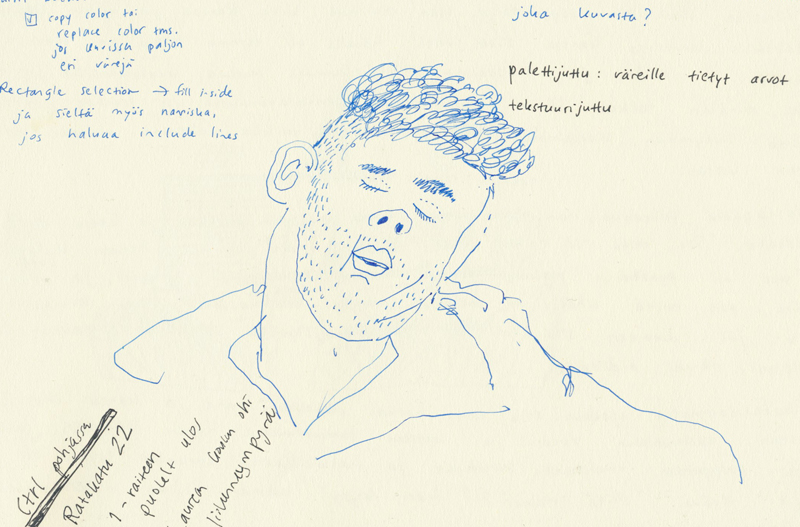 copy color toi
replace color tms.
jos kuvissa paljon
eri värejä
Rectangle selection → fill inside
ja sieltä myös naniska,
jos haluaa include lines
joka kuvasta?
palettijuttu: väreille tietyt arvot
tekstuurijuttu
Ctrl pohjassa
Ratakatu 22
1-raiteen
puolelt ulos
aurea ohi
liikenneympyrä